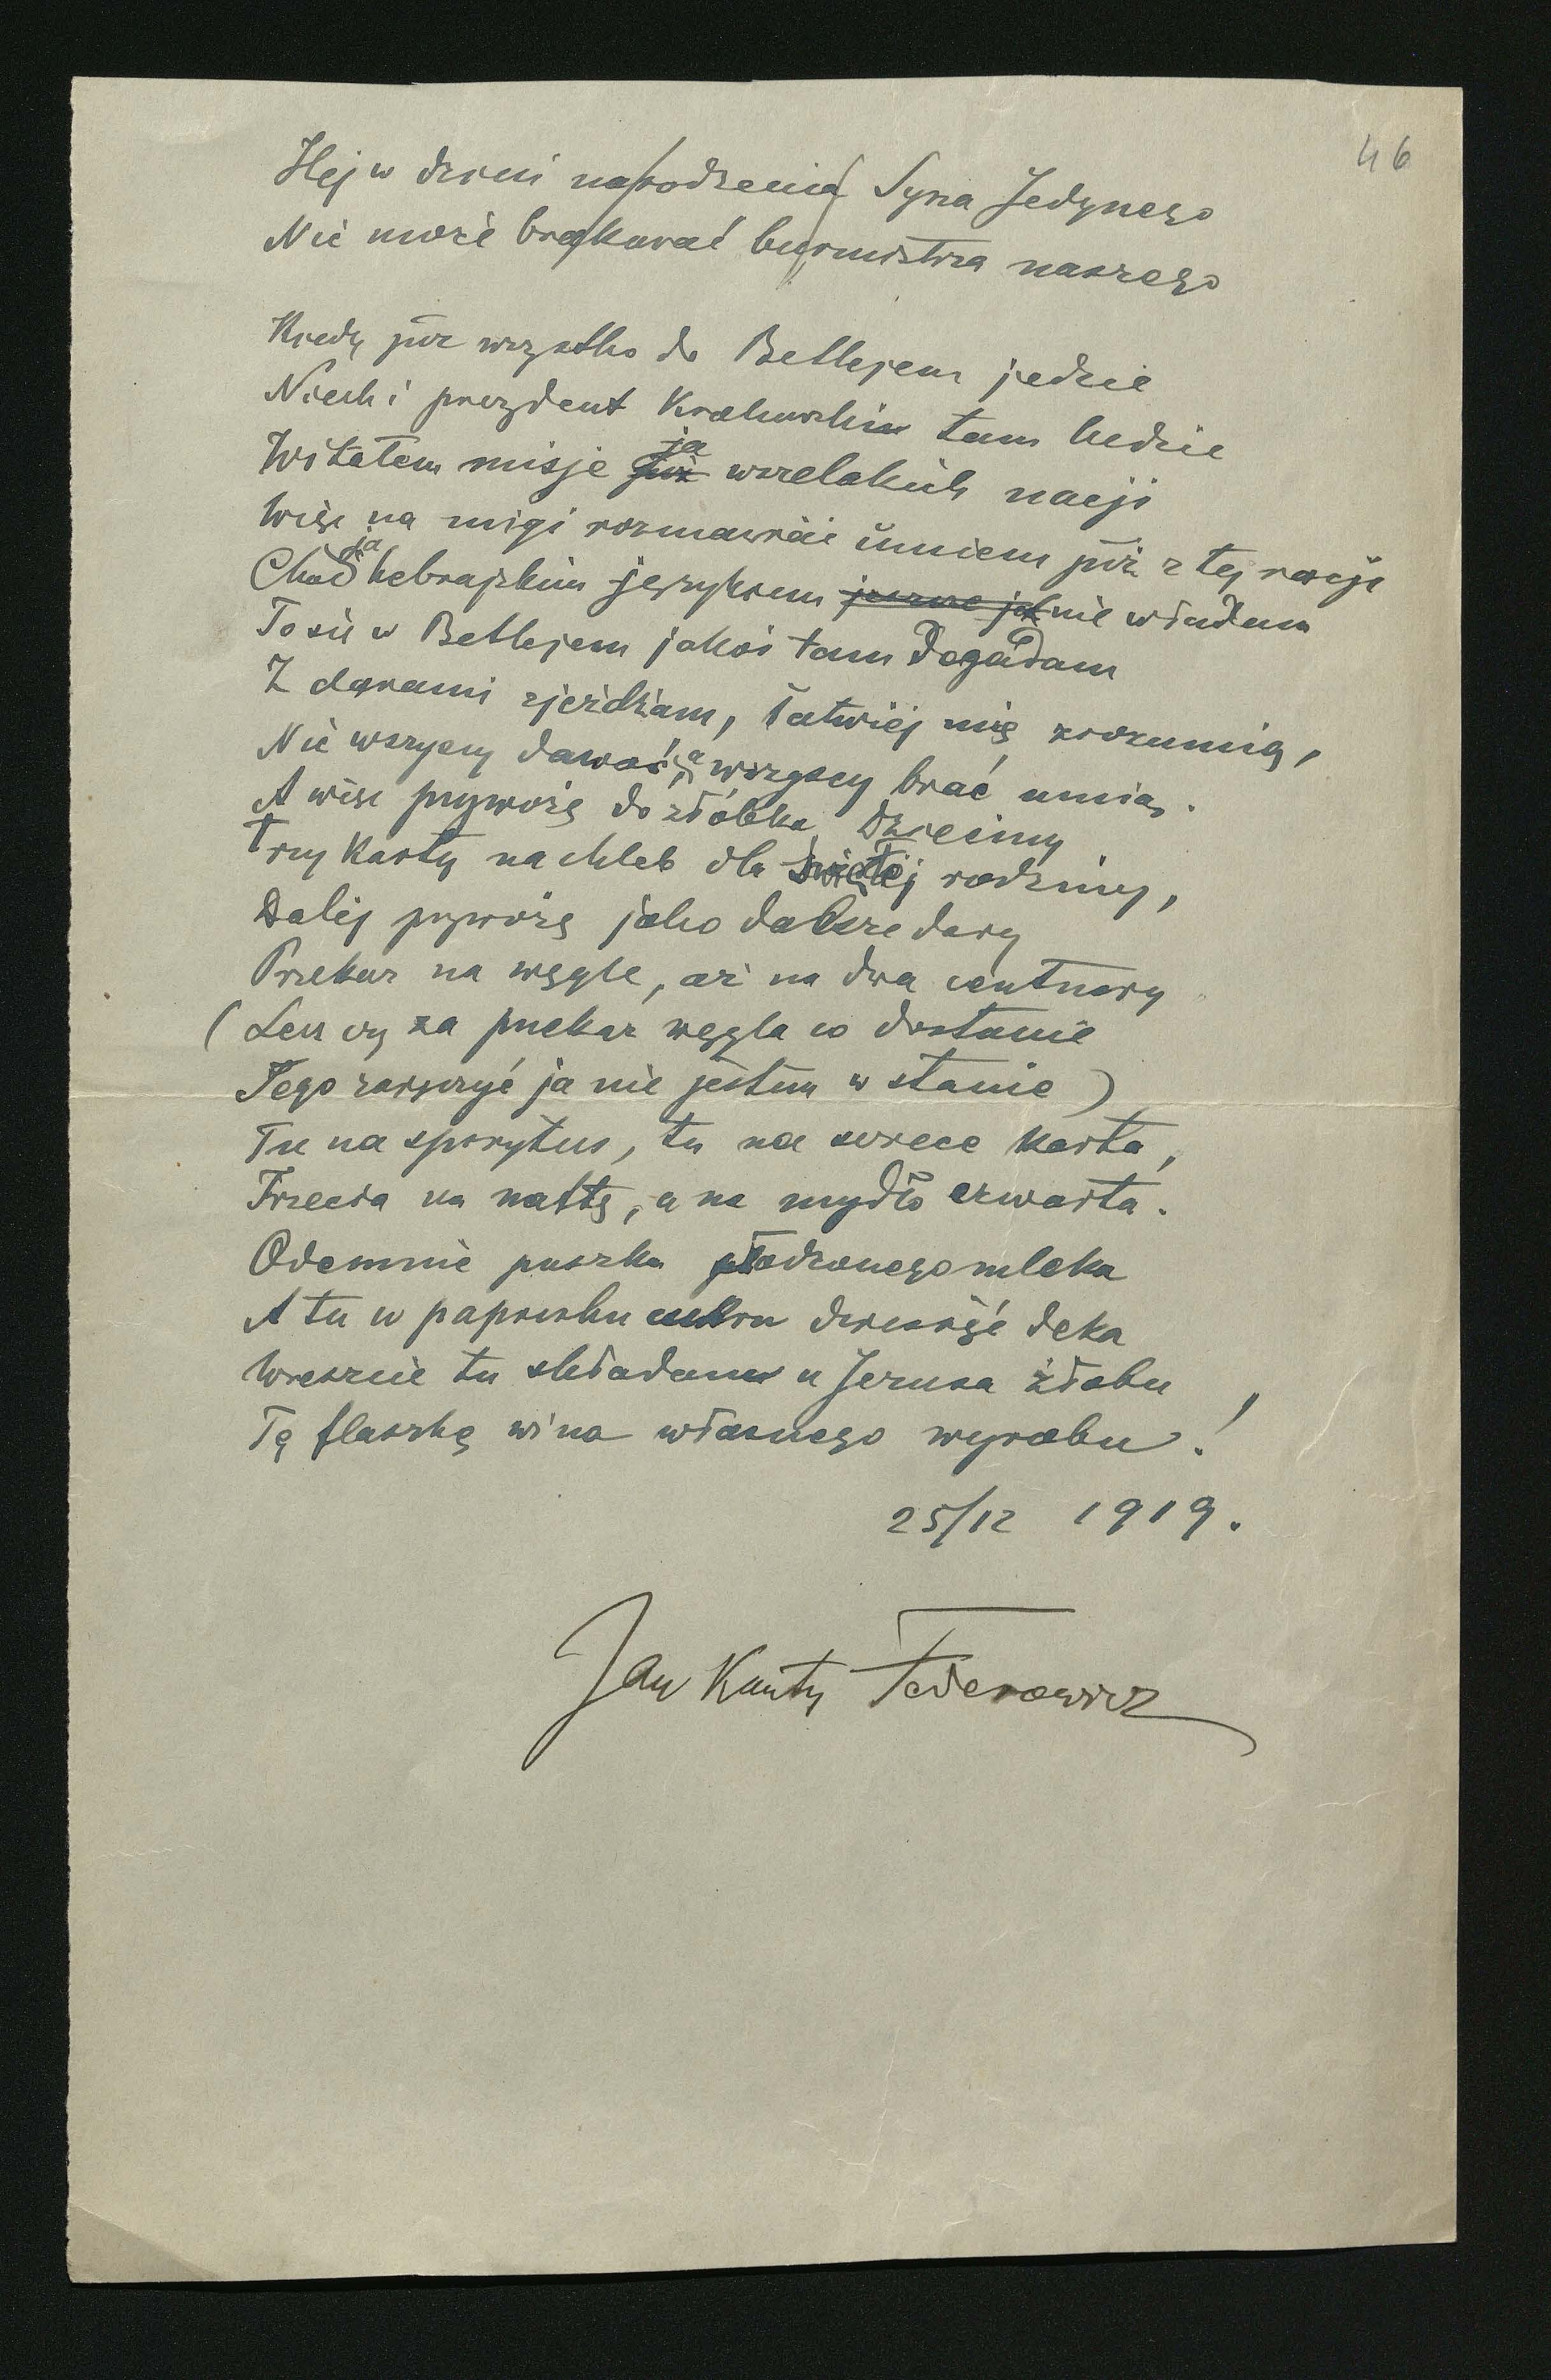 46
Hej w dzień narodzenia Syna Jedynego
Nie może brakować burmistrza naszego
Kiedy już wszystko do Betlejem jedzie
Niech i prezydent Krakowskim tam będzie
Witałem misje już ja wszelakich nacji
Więc na migi rozmawiać umiem już z tej racji
Choć ja hebrajskim językiem nie władam
To się w Betlejem jakoś tam dogadam
Z darami zjeżdżam, łatwiej mię zrozumią,
Nie wszyscy dawać, a wszyscy brać umią.
A więc przywożę do żłóbka Dzieciny
Trzy karty na chleb dla świętej rodziny,
Dalej przywożę jako dalsze dary
Przekaz na węgle, aż na dwa centnary
(Lecz czy za przekaz węgla co dostanie
Tego zaręczyć ja nie jestem w stanie)
Tu na spirytus, tu na świece karta,
Trzecia na naftę, a na mydło czwarta.
Odemnie puszka słodzonego mleka
A tu w papierku cukru dziesięć deka
Wreszcie tu składam u Jezusa żłobu
Tę flaszkę wina własnego wyrobu!
25/12 1919.
Jan Kanty Federowicz